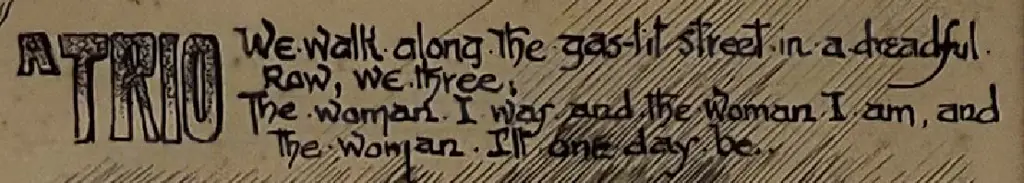 A TRIO
We walk along the gas-lit street in a dreadful
Row, we three;
The woman I was and the woman I am, and
the woman I'll one day be..